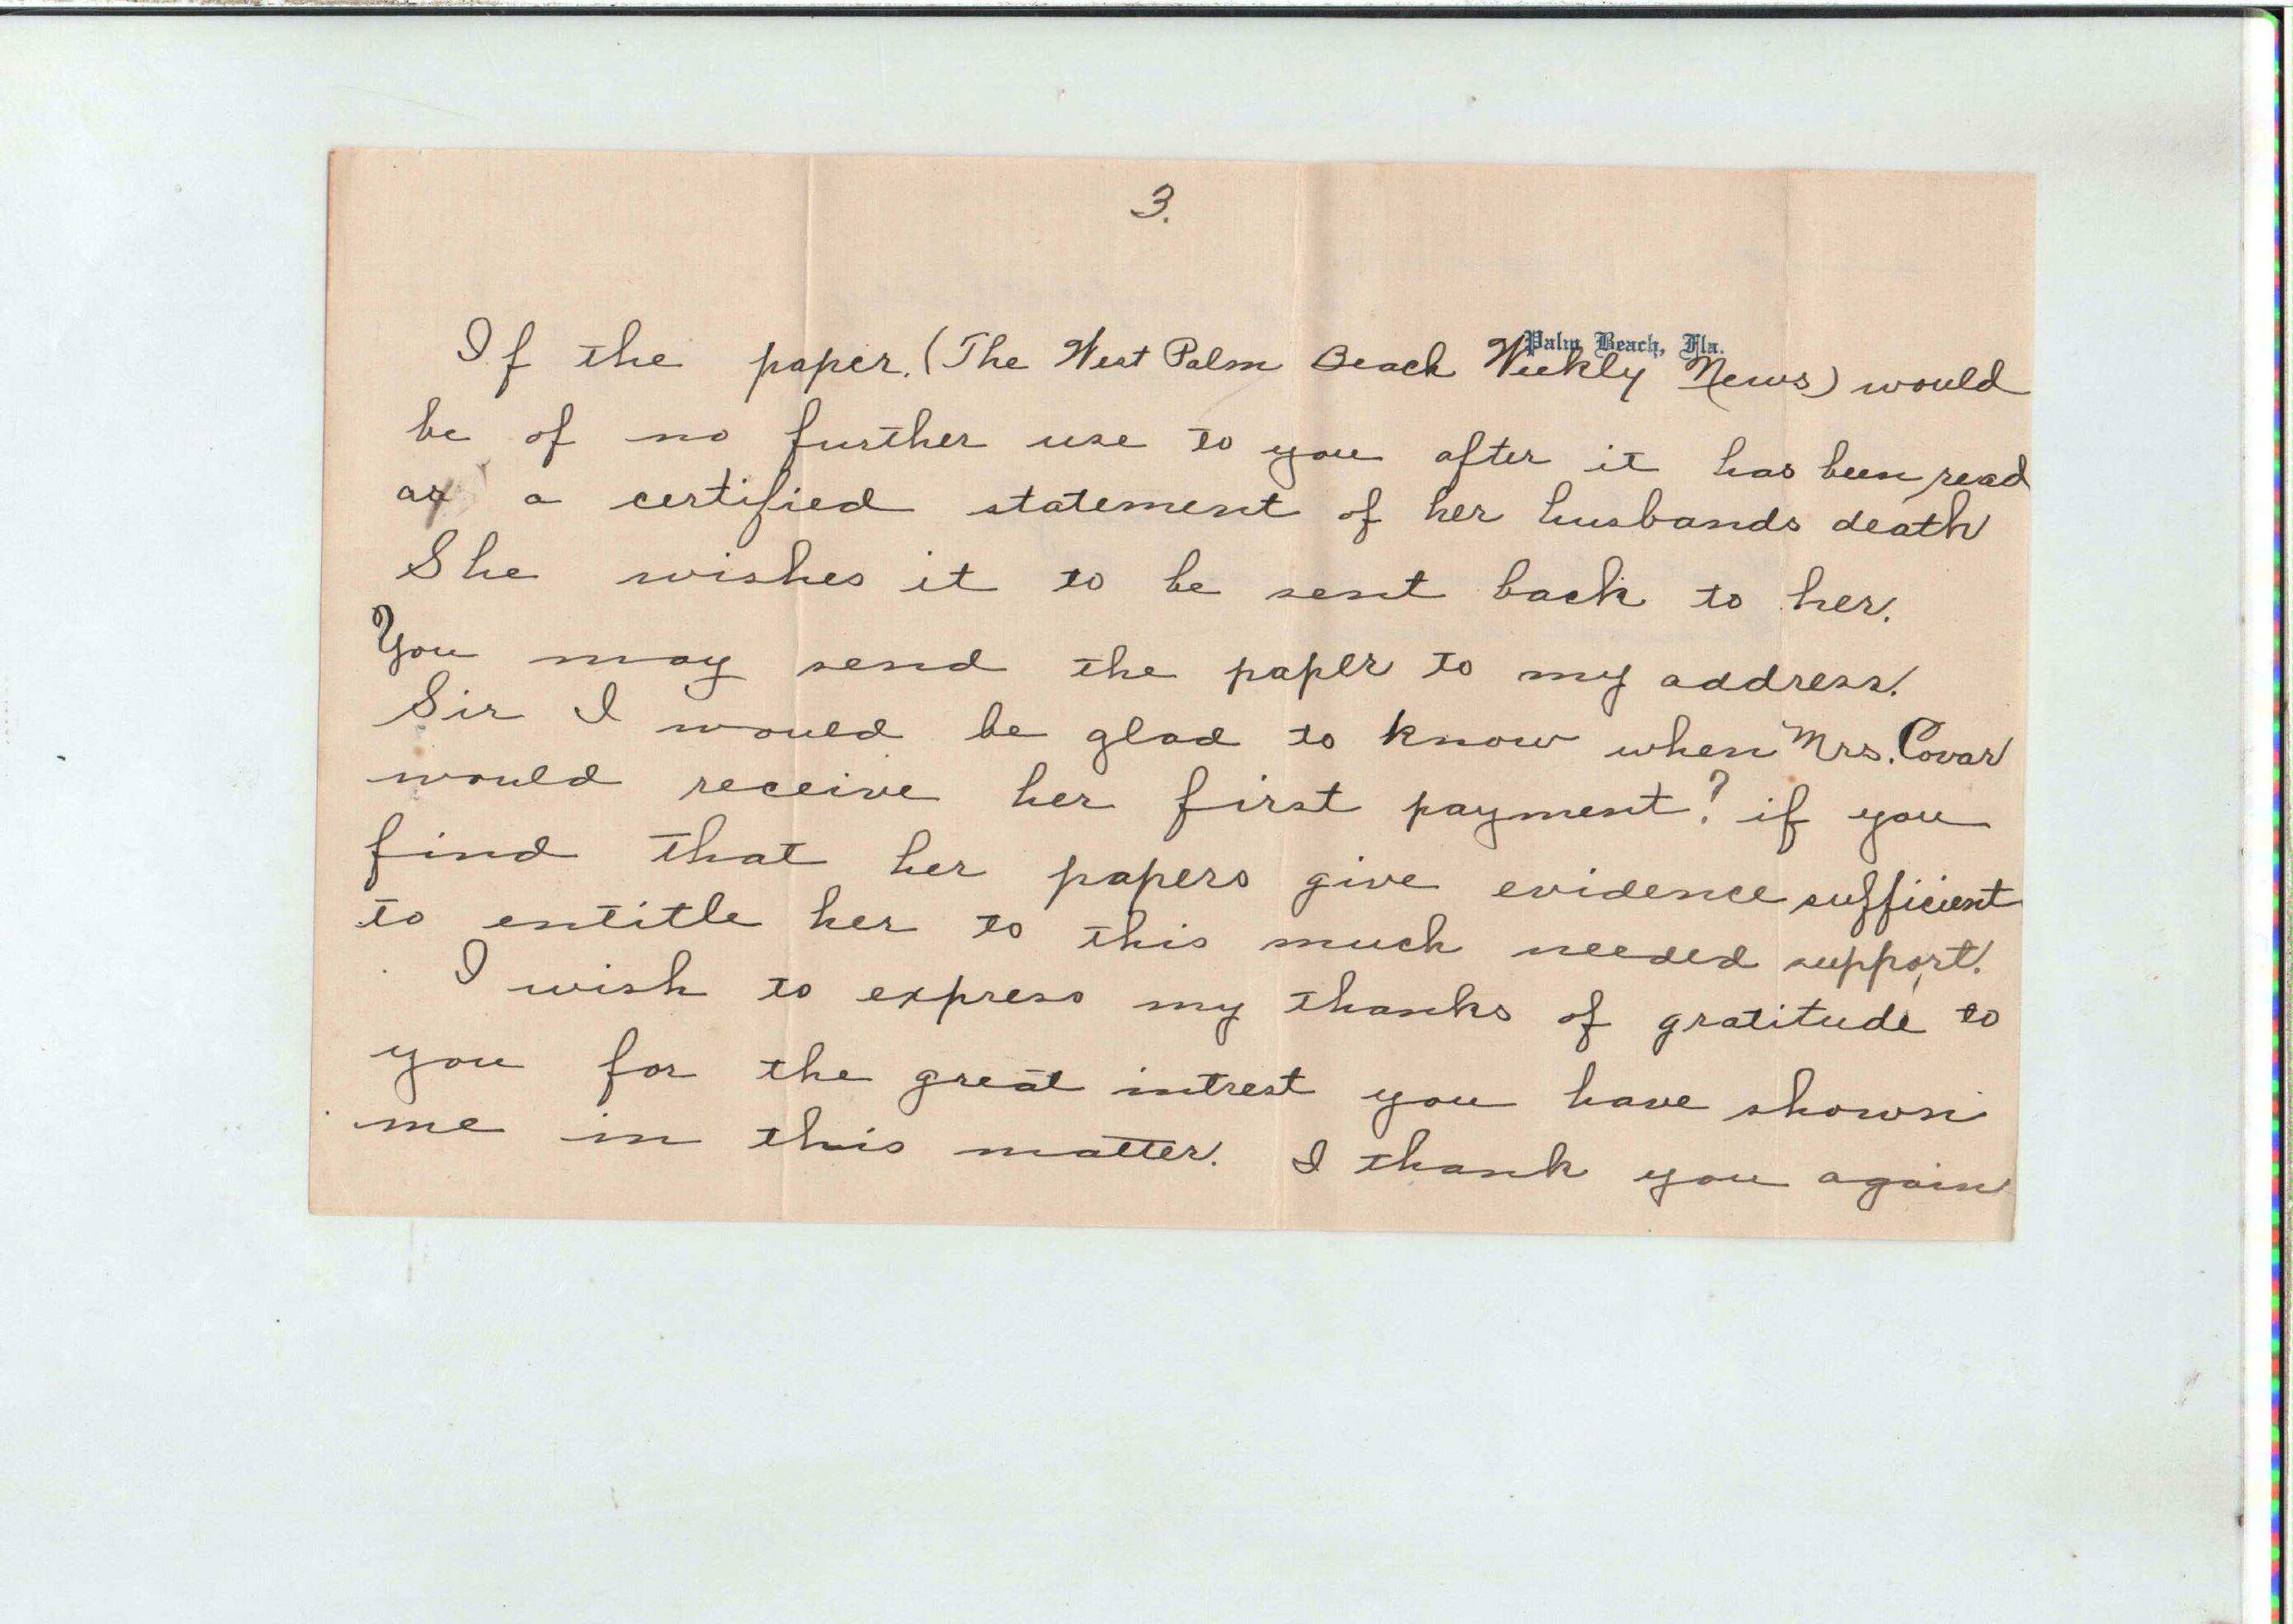 3.
Palm Beach, Fla.
If the paper. (The West Palm Beach Weekly News) would
be of no further use to you after it has been read
as a certified statement of her husbands death
She wishes it to be sent back to her.
You may send the paper to my address.
Sir I would be glad to know when Mrs. Covar
would receive her first payment? if you
find that her papers give evidence sufficient
to entitle her to this much needed support.
I wish to express my thanks of gratitude to
you for the great intrest you have shown
me in this matter. I thank you again